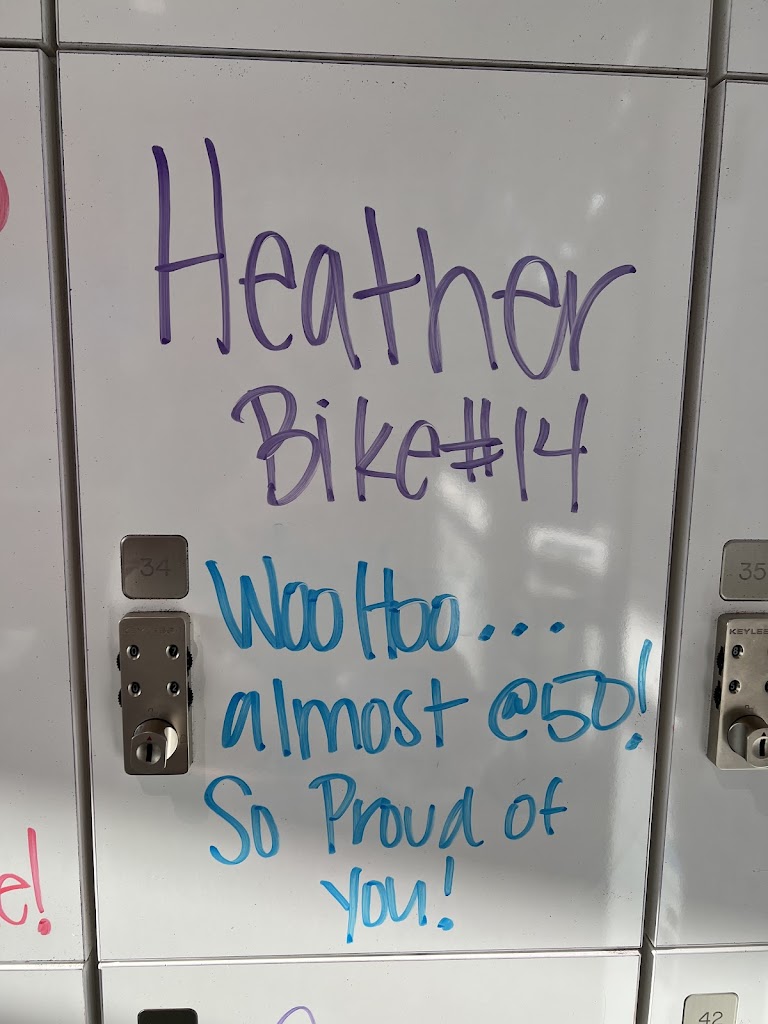 Heather
Bike #14
34
35
KEYLE
WooHoo...
almost @50!
So Proud of
you!
e!
42